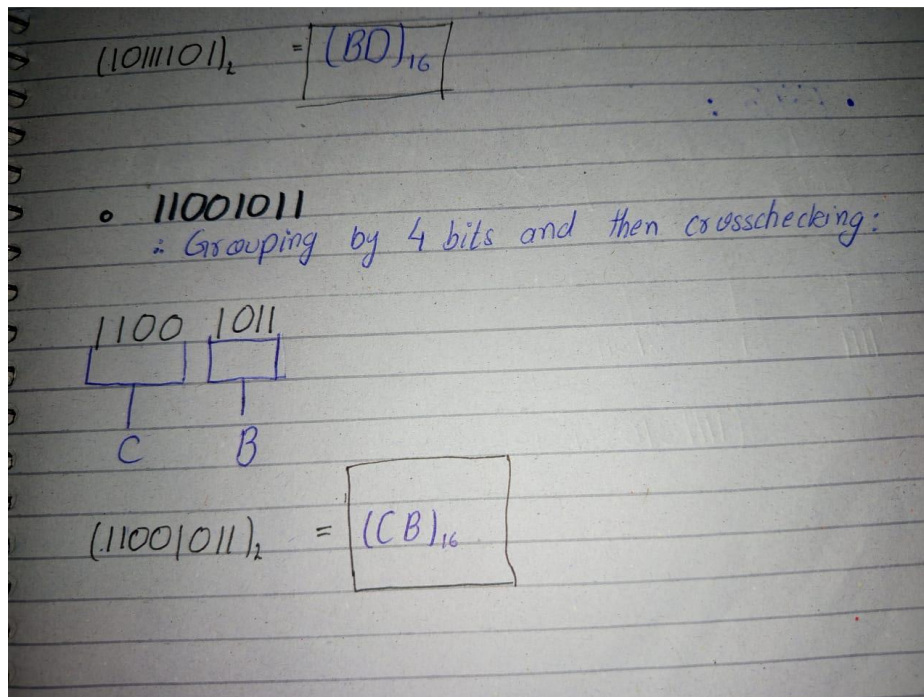 (10111101)₂ = (BD)₁₆
• 11001011
∴ Grouping by 4 bits and then crosschecking:
1100 1011
C B
(11001011)₂ = (CB)₁₆